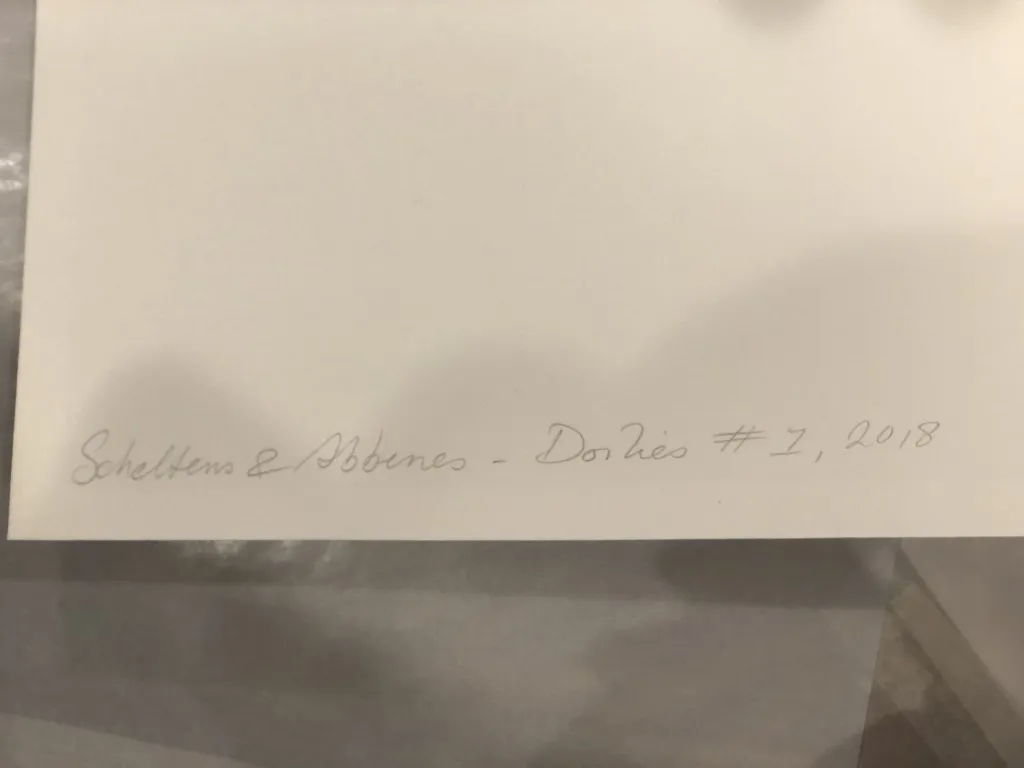 Scheltens & Abbenes - Doilies # 1, 2018